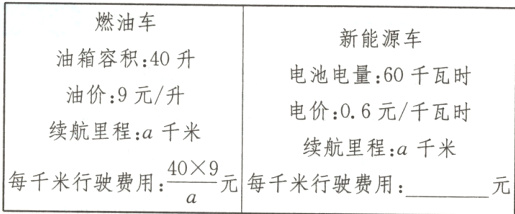 燃油车
油箱容积:40升
油价:9元/升
续航里程:a千米
每千米行驶费用:$\frac{40×9}{a}$元
新能源车
电池电量:60千瓦时
电价:0.6元/千瓦时
续航里程:a千米
每千米行驶费用:________元